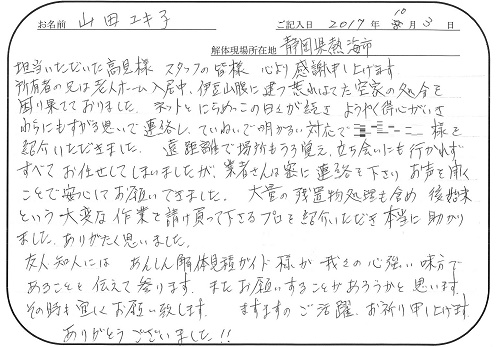 お名前 山田ユキ子 ご記入日 2017年 10月 3日
解体現場所在地 静岡県熱海市
担当いただいた高見様 スタッフの皆様 心より感謝申し上げます
所有者の兄は老人ホーム入居中、伊豆山腹に建つ荒れはてた空家の処分を
困り果てておりました。ネットとにらめっこの日々が続き ようやく得心がいき
わらにもすがる思いで連絡し、ていねいで明かるい対応で 様を
紹介いただきました。遠距離で場所もうろ覚え、立ち会いにも行かれず
すべてお任せしてしまいましたが、業者さんは密に連絡を下さり お声を聞く
ことで安心してお願いできました。大量の残置物処理も含め 後始末
という大変な作業を請け負って下さるプロを紹介いただき本当に助かり
ました。ありがたく思いました。
友人知人には あんしん解体見積ガイド様が 我々の心強い味方で
あることを伝えて参ります。またお願いすることがあろうかと思います。
その時も宜しくお願い致します。ますますのご活躍、お祈り申し上げます。
ありがとうございました!!